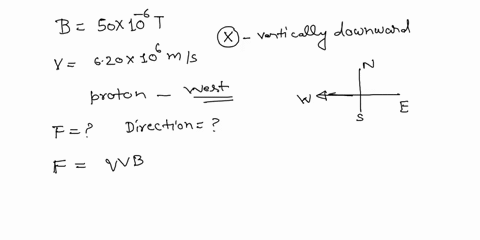 B = 50×10⁻⁶ T
Ⓧ - vertically downward
V = 6.20×10⁶ m/s
proton - west
N
W
S
E
F = ? Direction = ?
F = qVB